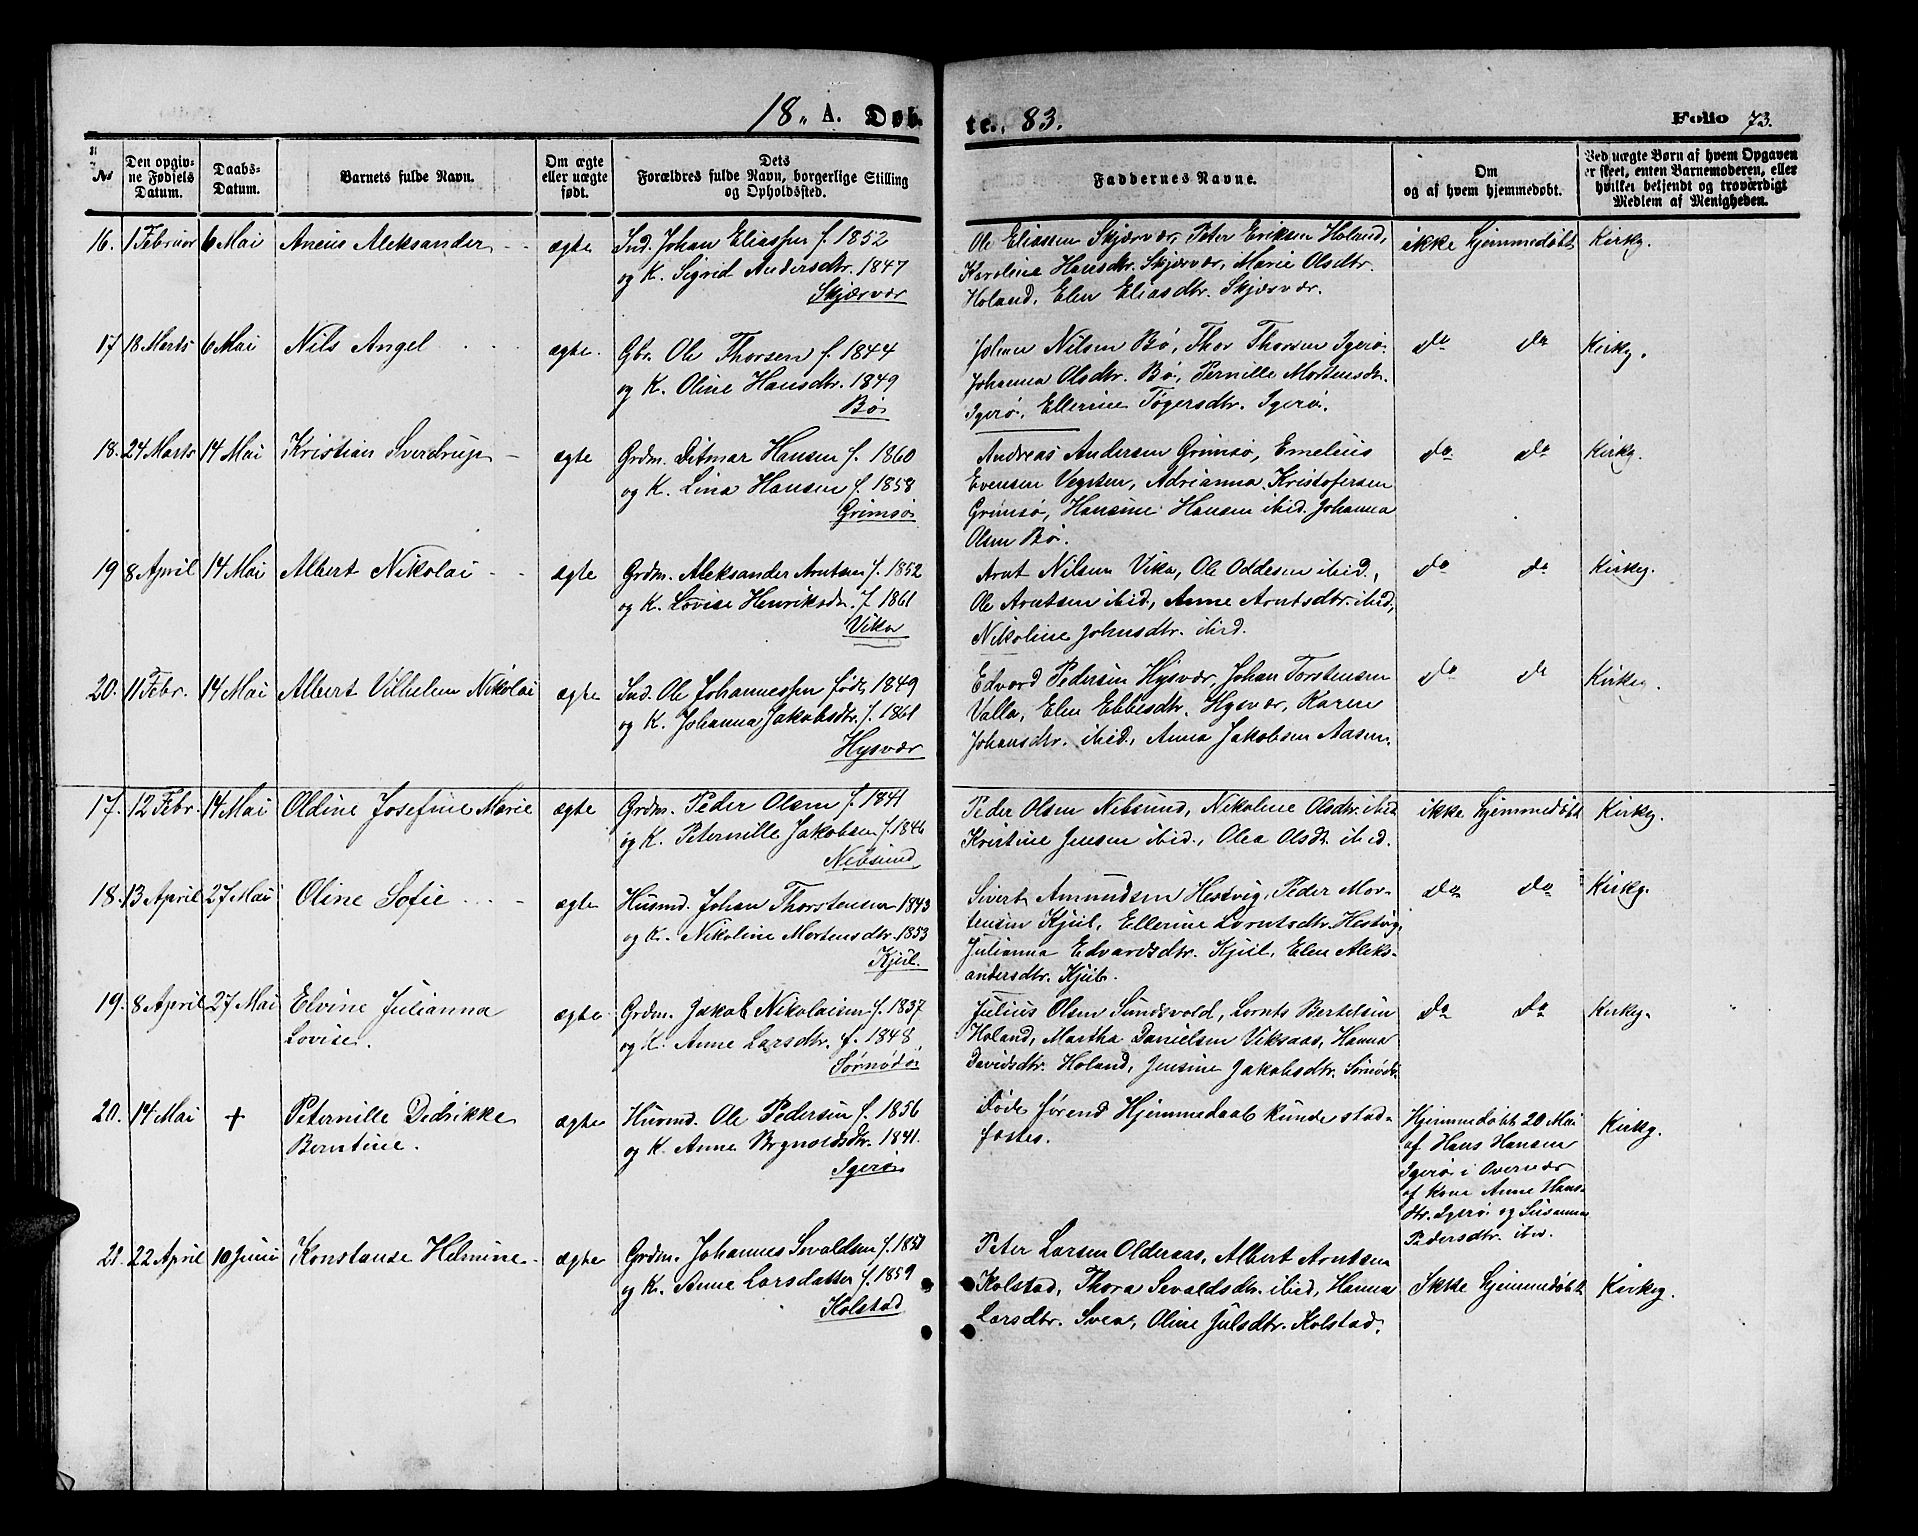 18 A. Døb-
te. 83.
Folio 73.
No
Den opgiv-
ne Fødsels
Datum.
Daabs-
Datum.
Barnets fulde Navn.
Om ægte
eller uægte
født.
Dets
Forældres fulde Navn, borgerlige Stilling
og Opholdssted.
Faddernes Navne.
Om
og af hvem hjemmedøbt.
Ved uægte Børn af hvem Opgaven
er skeet, enten Barnemoderen, eller
hvilket betjendt og troværdigt
Medlem af Menigheden.
16. 1 Februar 6 Mai Aneus Aleksander ægte
Ind. Johan Eliassen f. 1852
og K. Sigrid Andersdtr. 1847
Skjærvær
Ole Eliassen Skjærvær, Peter Eriksen Holand,
Karolina Hansdtr. Skjærvær, Marie Olsdtr.
Holand, Elen Eliasdtr. Skjærvær.
ikke hjemmedøbt Kirkg.
17 18 Marts 6 Mai Nils Angel ægte.
Gbr. Ole Thorsen f. 1844
og K. Oline Hansdtr. 1849
Bø
Johan Nilsen Bø, Thor Thorsen Igerø,
Johanna Olsdtr. Bø, Pernille Mortensdtr.
Igerø, Ellerine Tøgersdtr. Igerø.
do do Kirkg.
18. 24 Marts 14 Mai Kristian Sverdrup ægte
Grdm. Ditmar Hansen f. 1860
og K. Lina Hansen f. 1858
Grimsø
Andreas Andersen Grimsø, Emelius
Evensen Vegsten, Adrianna Kristofersen
Grimsø, Hansine Hansen ibid. Johanna
Olsen Bø.
do do Kirkg.
19 8 April 14 Mai Albert Nikolai ægte
Grdm. Aleksander Arntsen f. 1852
og K. Lovise Henriksdtr. f. 1861
Vika
Arnt Nilsen Vika, Ole Oddesen ibid.,
Ole Arntsen ibid, Anne Arntsdtr. ibid,
Nikoline Johnsdtr. ibid.
do do Kirkg.
20. 11 Febr. 14 Mai Albert Vilhelm Nikolai ægte
Ind. Ole Johannessen født 1849
og K. Johanna Jakobsdtr. f. 1861
Hysvær
Edvard Pedersen Hysvær, Johan Torstensen
Valla, Elen Ebbesdtr. Hysvær, Karen
Johansdtr. ibid, Anna Jakobsen Aasen.
do do Kirkg.
17. 12 Febr. 14 Mai Oldine Josefine Marie ægte
Grdm. Peder Olsen f. 1841
og K. Peternille Jakobsen f. 1846
Nebsund
Peder Olsen Nebsund, Nikoline Olsdtr. ibid
Kristine Jensen ibid., Olea Olsdt. ibid.
ikke hjemmedøbt Kirkg.
18. 13 April 27 Mai Oline Sofie ægte
Husmd. Johan Thorstensen 1843
og K. Nikoline Mortensdtr. 1853
Kjul.
Sivert Amundsen Hestvig, Peder Mor-
tensen Kjul, Ellerine Lorntsdtr. Hestvig,
Julianna Edvardsdtr. Kjul, Elen Aleks-
andersdtr. Kjul.
do do Kirkg.
19. 8 April 27 Mai Elvine Julianna
Lovise.
ægte
Grdm. Jakob Nikolaisen f. 1837
og K. Anne Larsdtr. f. 1848
Sørnødø
Julius Olsen Sundsvold, Lornts Bertelsen
Holand, Martha Danielsen Viksaas, Hanna
Davidsdtr. Holand, Jensine Jakobsdtr. Sørnødø.
do do Kirkg.
20. 14 Mai + Peternille Dedrikke
Berntine.
ægte
Husmd. Ole Pedersen f. 1856
og K. Anne Brynoldsdtr. 1841.
Igerø
Døde førend Hjemmedaab kunde stad-
fæstes.
Hjemmedøbt 20 Mai
af Hans Hansen
Igerø i Overvær
af Kone Anne Hans-
dtr. Igerø og Susanna
Pedersdtr. ibid.
Kirkg.
21. 22 April 10 Juni Konstanse Helmine ægte
Grdm. Johannes Sevaldsen f. 1851
og K. Anne Larsdatter f. 1859
Kolstad
Peter Larsen Olderaas, Albert Arntsen
Kolstad, Thora Sevaldsdtr. ibid, Hanna
Larsdtr. Svea, Oline Julsdtr. Kolstad.
Ikke hjemmedøbt Kirkg.